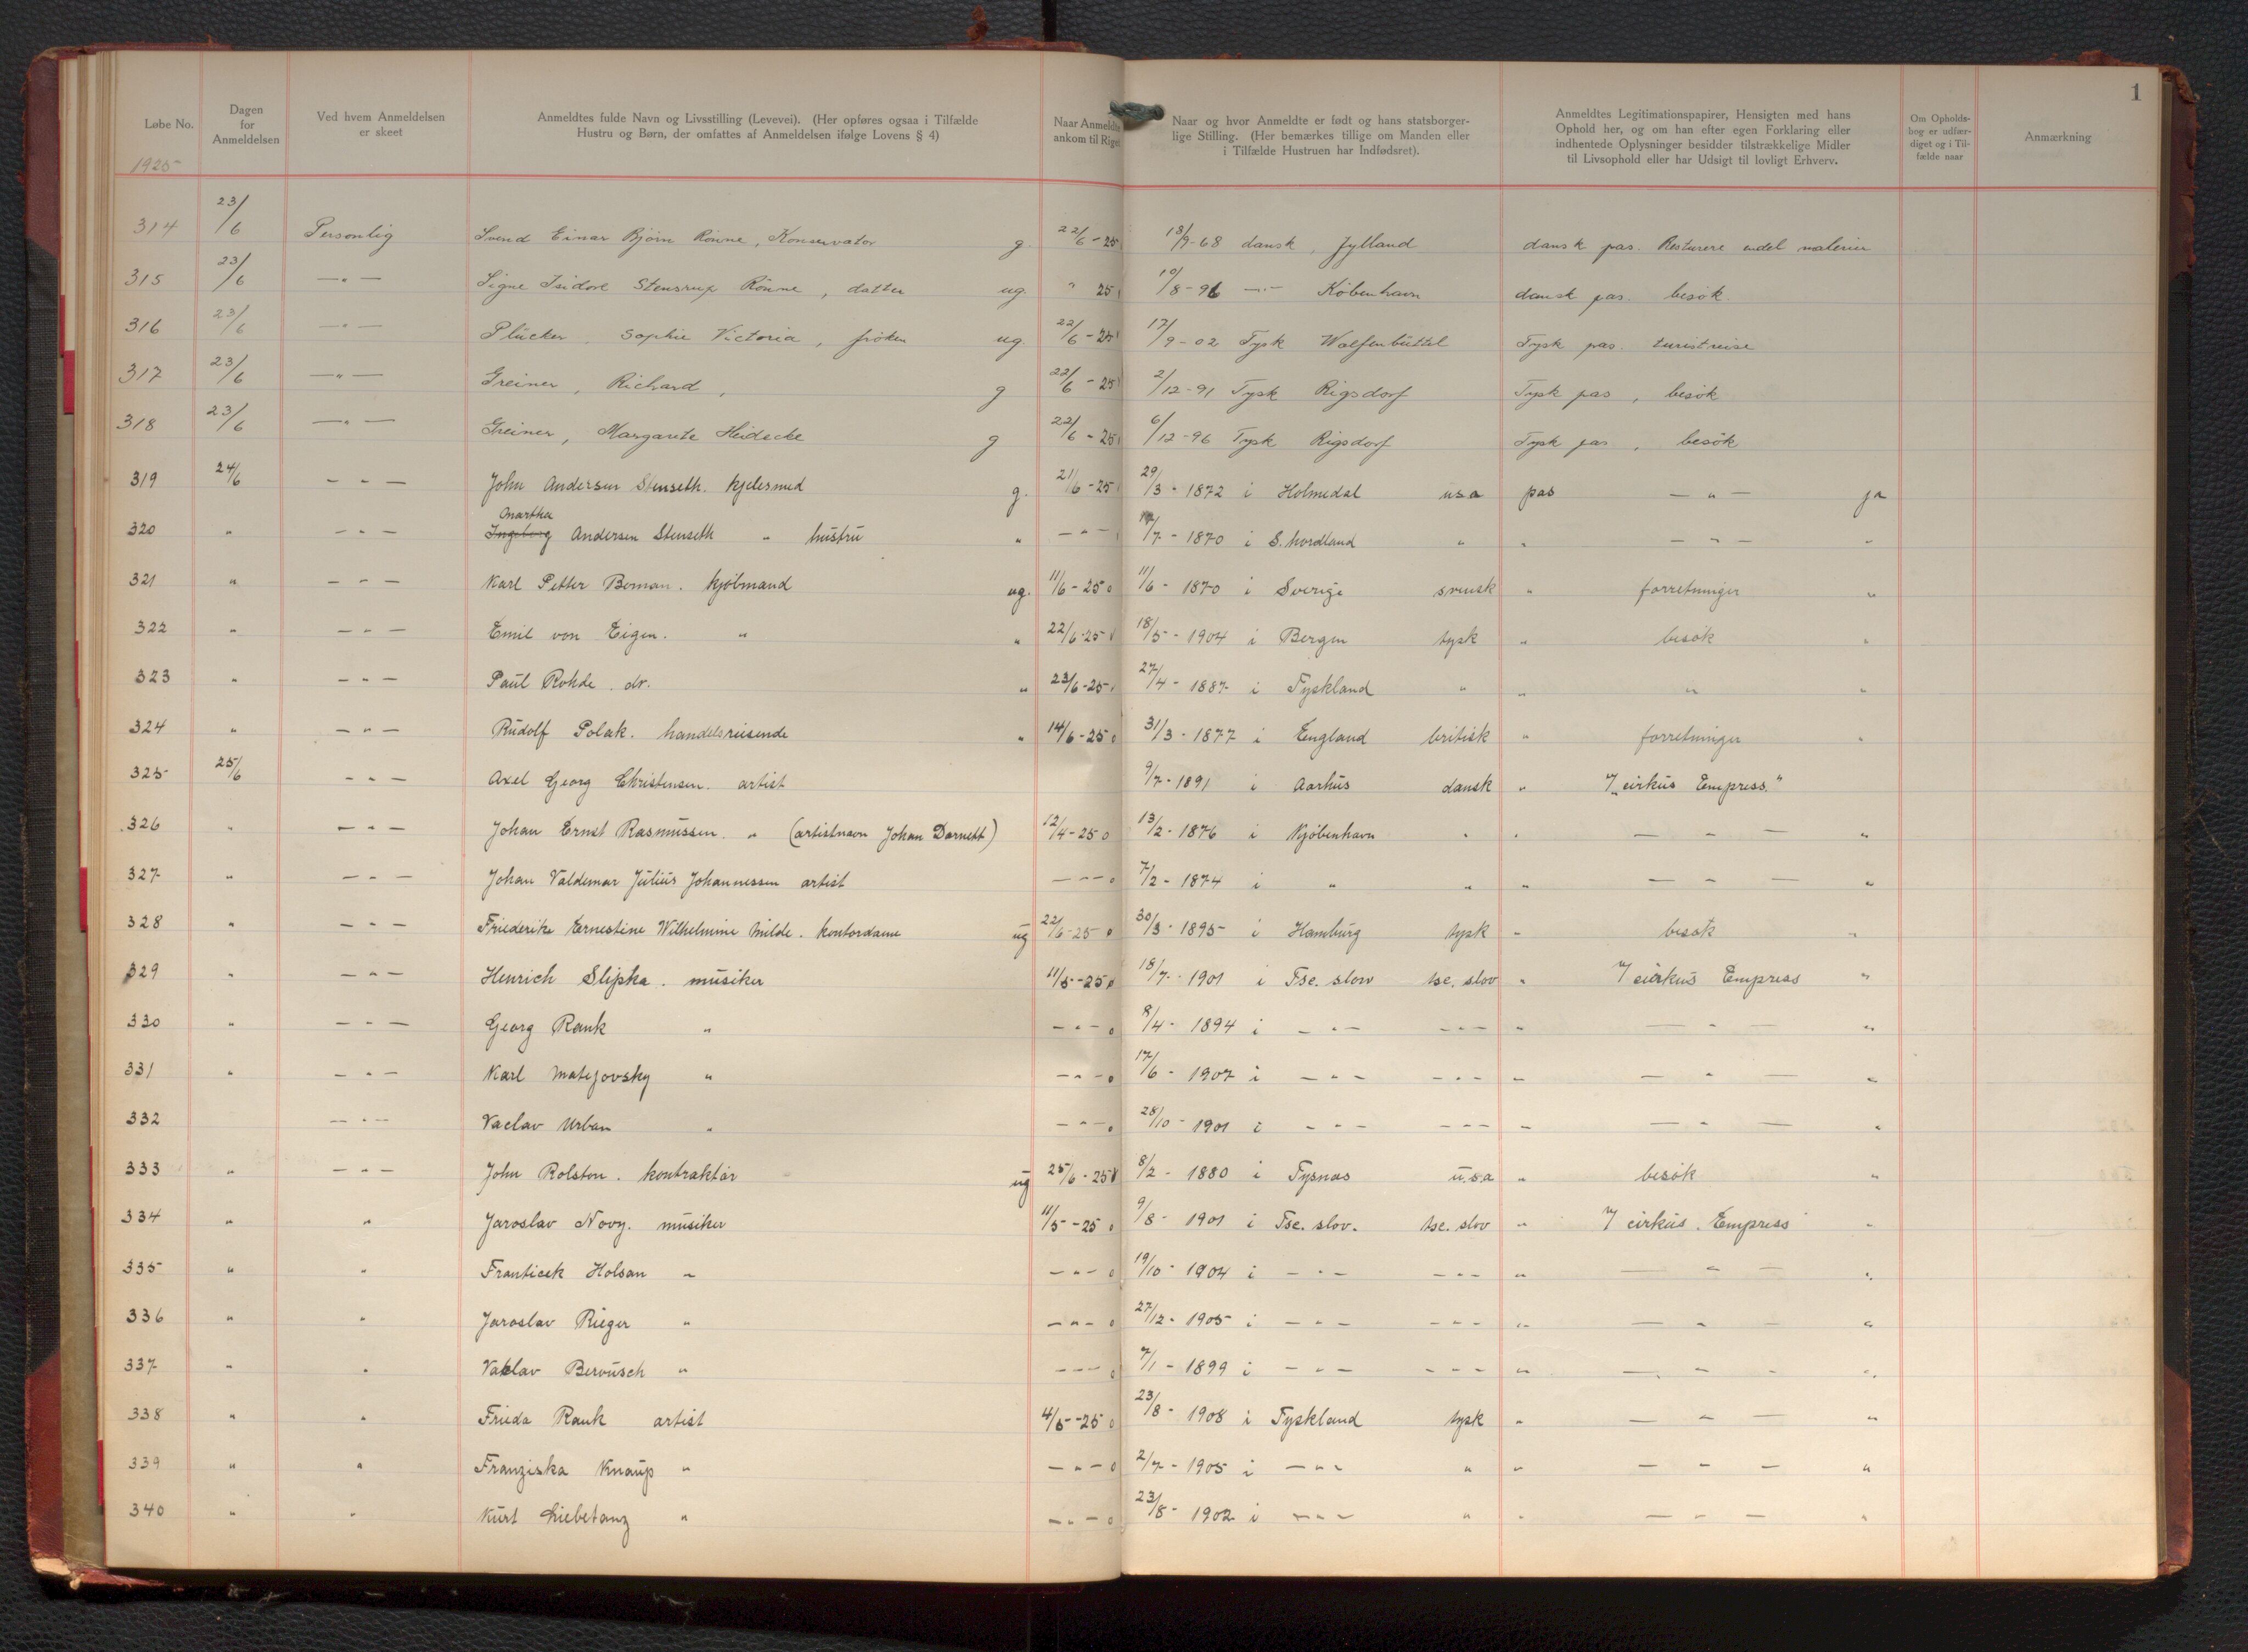 1
Løbe No.
Dagen for Anmeldelsen
Ved hvem Anmeldelsen er skeet
Anmeldtes fulde Navn og Livsstilling (Levevei). (Her opføres ogsaa i Tilfælde Hustru og Børn, der omfattes af Anmeldelsen ifølge Lovens § 4)
Naar Anmeldte ankom til Riget
Naar og hvor Anmeldte er født og hans statsborgerlige Stilling. (Her bemærkes tillige om Manden eller i Tilfælde Hustruen har Indfødsret).
Anmeldtes Legitimationspapirer, Hensigten med hans Ophold her, og om han efter egen Forklaring eller indhentede Oplysninger besidder tilstrækkelige Midler til Livsophold eller har Udsigt til lovligt Erhverv.
Om Opholdsbog er udfærdiget og i Tilfælde naar
Anmærkning
1925
314 23/6 Personlig Svend Einar Bjørn Rönne, Konservator g. 22/6-25 18/9-68 dansk, Jylland dansk pas. Resturere endel malerier
315 23/6 —„— Signe Isidore Stensrup Rönne, datter ug. " 25 10/8-96 —„— København dansk pas. besøk.
316 23/6 —„— Plücker, Sophie Victoria, frøken ug. 22/6-25 17/9-02 Tysk Wolfenbüttel Tysk pas. turistreise
317 23/6 —„— Greiner, Richard, g 22/6-25 2/12-91 Tysk Rigsdorf Tysk pas, besøk
318 23/6 —„— Greiner, Margarete Heidecke g 22/6-25 6/12-96 Tysk Rigsdorf Tysk pas, besök
319 24/6 —„— John Andersen Stenseth. kjelesmed g. 21/6-25 29/3-1872 i Holmedal usa pas —„— ja
320 " —„— Martha Ingeborg Andersen Stenseth " hustru " —„— /7-1870 i S. hordland " " —„— "
321 " —„— Karl Petter Boman. kjøbmand ug. 11/6-25 o 11/6-1870 i Sverige svensk " forretninger "
322 " —„— Emil von Eigen. " " 22/6-25 18/5-1904 i Bergen tysk " besøk "
323 " —„— Paul Rohde. dr. " 23/6-25 27/4-1887 i Tyskland " " " "
324 " —„— Rudolf Polak. handelsreisende " 14/6-25 o 31/3-1877 i England britisk " forretninger "
325 25/6 —„— Axel Georg Christensen. artist 9/7-1891 i Aarhus dansk " v/ „cirkus Empress."
326 " —„— Johan Ernst Rasmussen. " (artistnavn Johan Darnett) 12/4-25 o 13/2-1876 i Kjøbenhavn " " —„— "
327 " —„— Johan Valdemar Julius Johannessen artist —„— o 7/2-1874 i " " " —„— "
328 " —„— Friederike Ernestine Wilhelmine Milde. kontordame ug 22/6-25 o 30/3-1895 i Hamburg tysk " besøk "
329 " —„— Henrich Slipka. musiker 11/5-25 o 18/7-1901 i Tse. slow tse. slov " v/ cirkus Empress "
330 " —„— Georg Rank " —„— o 8/4-1894 i —„— —„— " —„— "
331 " —„— Karl Matejovsky " —„— o 17/6-1907 i —„— —„— " —„— "
332 —„— Vaclav Urban " —„— o 28/10-1901 i —„— —„— " —„— "
333 " —„— John Rolston. kontraktør ug 25/6-25 8/2-1880 i Tysnes u.s.a " besøk "
334 " " Jaroslav Novy. musiker 11/5-25 o 9/8-1901 i Tse. slov. tse. slov " v/ cirkus. Empress "
335 " " Franticek Holsan " —„— o 19/10-1904 i —„— —„— " —„— "
336 " " Jaroslav Rieger " —„— o 27/12-1905 i —„— —„— " —„— "
337 " " Vaklav Berousch " —„— o 7/1-1899 i —„— —„— " —„— "
338 " " Frieda Rank artist 4/5-25 o 23/8-1908 i Tyskland tysk " —„— "
339 " " Franziska Knaup " —„— o 2/7-1905 i —„— " " —„— "
340 " " Kurt Liebetanz " —„— o 23/8-1902 i —„— " " —„— "